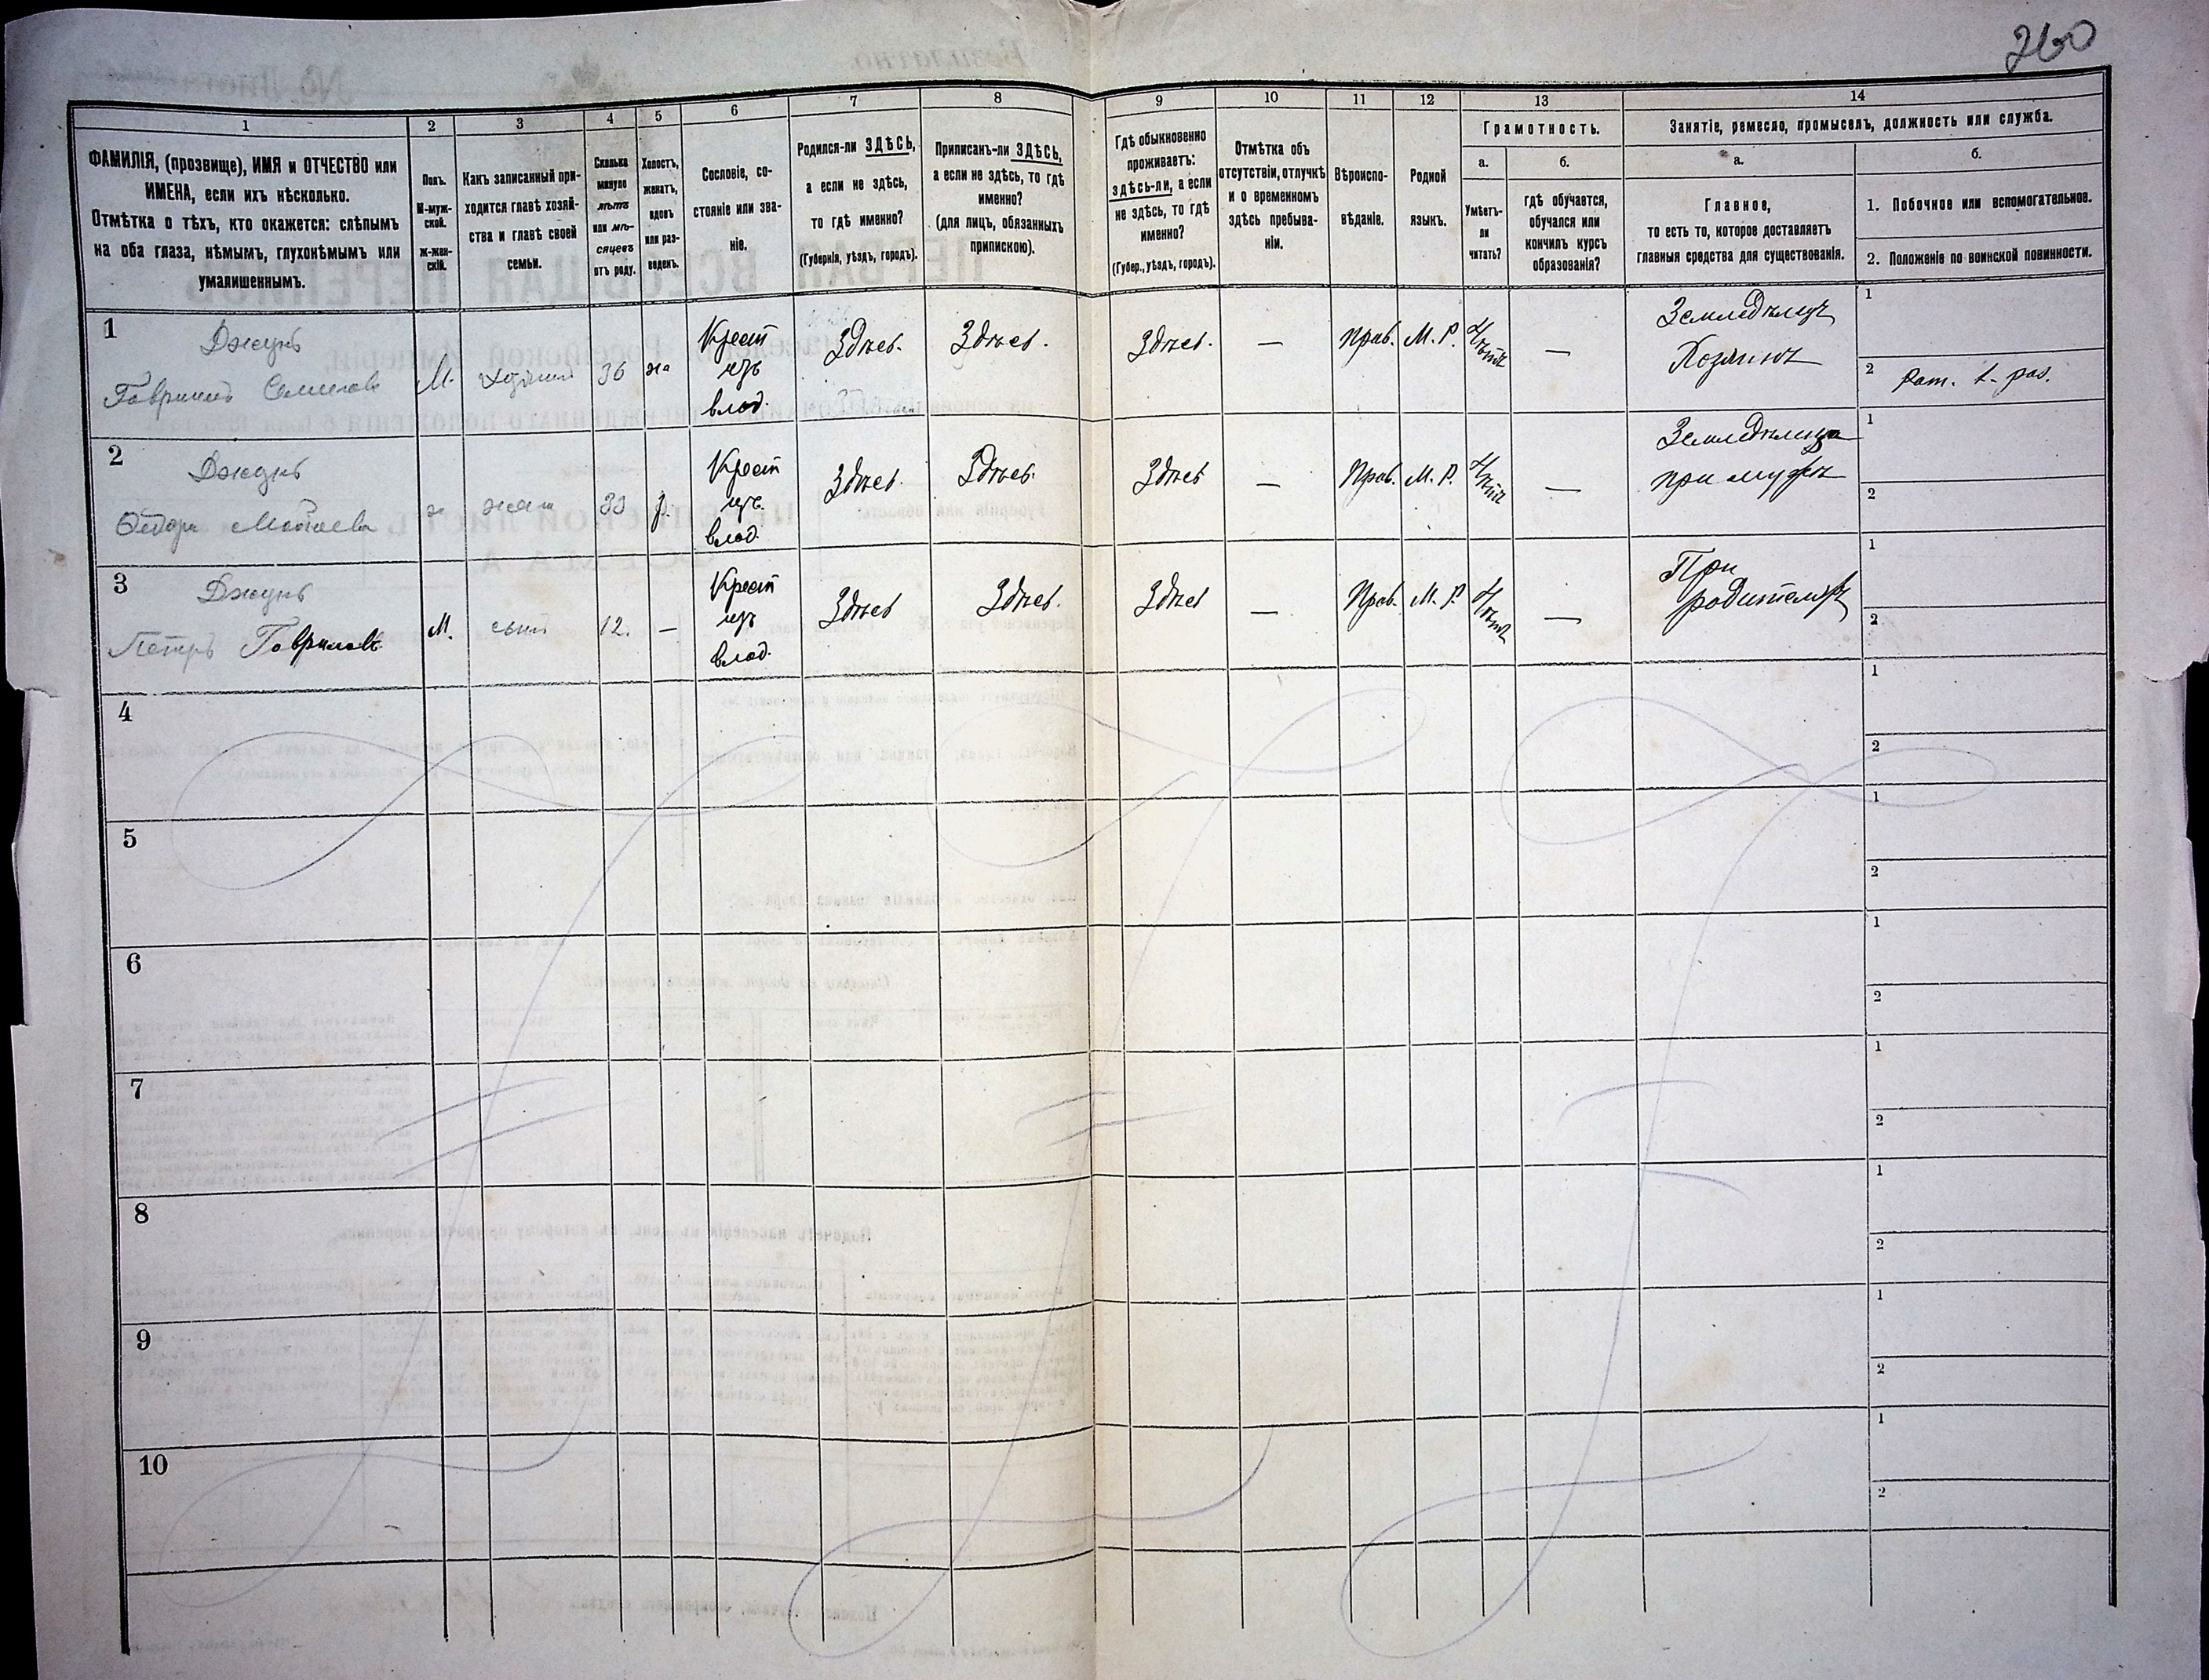 260
1
2
3
4
5
6
7
8
9
10
11
12
13
14
ФАМИЛІЯ, (прозвище), ИМЯ и ОТЧЕСТВО или
ИМЕНА, если ихъ нѣсколько.
Отмѣтка о тѣхъ, кто окажется: слѣпымъ
на оба глаза, нѣмымъ, глухонѣмымъ или
умалишеннымъ.
Полъ.
М-муж-
ской.
Ж-жен-
скій.
Какъ записанный при-
ходится главѣ хозяй-
ства и главѣ своей
семьи.
Сколько
минуло
лѣтъ
или мѣ-
сяцевъ
отъ роду.
Холостъ,
женатъ,
вдовъ
или раз-
веденъ.
Сословіе, со-
стояніе или зва-
ніе.
Родился-ли ЗДѢСЬ,
а если не здѣсь,
то гдѣ именно?
(Губернія, уѣздъ, городъ).
Приписанъ-ли ЗДѢСЬ,
а если не здѣсь, то гдѣ
именно?
(для лицъ, обязанныхъ
припискою).
Гдѣ обыкновенно
проживаетъ:
здѣсь-ли, а если
не здѣсь, то гдѣ
именно?
(Губер., уѣздъ, городъ).
Отмѣтка объ
отсутствіи, отлучкѣ
и о временномъ
здѣсь пребыва-
ніи.
Вѣроиспо-
вѣданіе.
Родной
языкъ.
Грамотность.
а.
Умѣетъ-
ли
читать?
б.
гдѣ обучается,
обучался или
кончилъ курсъ
образованія?
Занятіе, ремесло, промыселъ, должность или служба.
а.
Главное,
то есть то, которое доставляетъ
главныя средства для существованія.
б.
1. Побочное или вспомогательное.
2. Положеніе по воинской повинности.
1
Джунь
Гаврилъ Семеновъ
М.
36
Крест
изъ
влад.
Здѣсь.
Здѣсь.
Здѣсь.
—
Прав.
М. Р.
Нѣтъ
—
Земледѣлецъ
Хозяинъ
1
2 Рат. 1. раз.
2
Джунь
ж
жена
33
Крест
изъ
влад.
Здѣсь.
Здѣсь.
Здѣсь
—
Прав.
М. Р.
Нѣтъ
—
Земледѣлица
при мужѣ
1
2
3
Джунь
Петръ Гавриловъ
М.
сынъ
12.
—
Крест
изъ
влад.
Здѣсь
Здѣсь.
Здѣсь
—
Прав.
М. Р.
Нѣтъ
—
При
родителяхъ
1
2
4
1
2
5
1
2
6
1
2
7
1
2
8
1
2
9
1
2
10
1
2